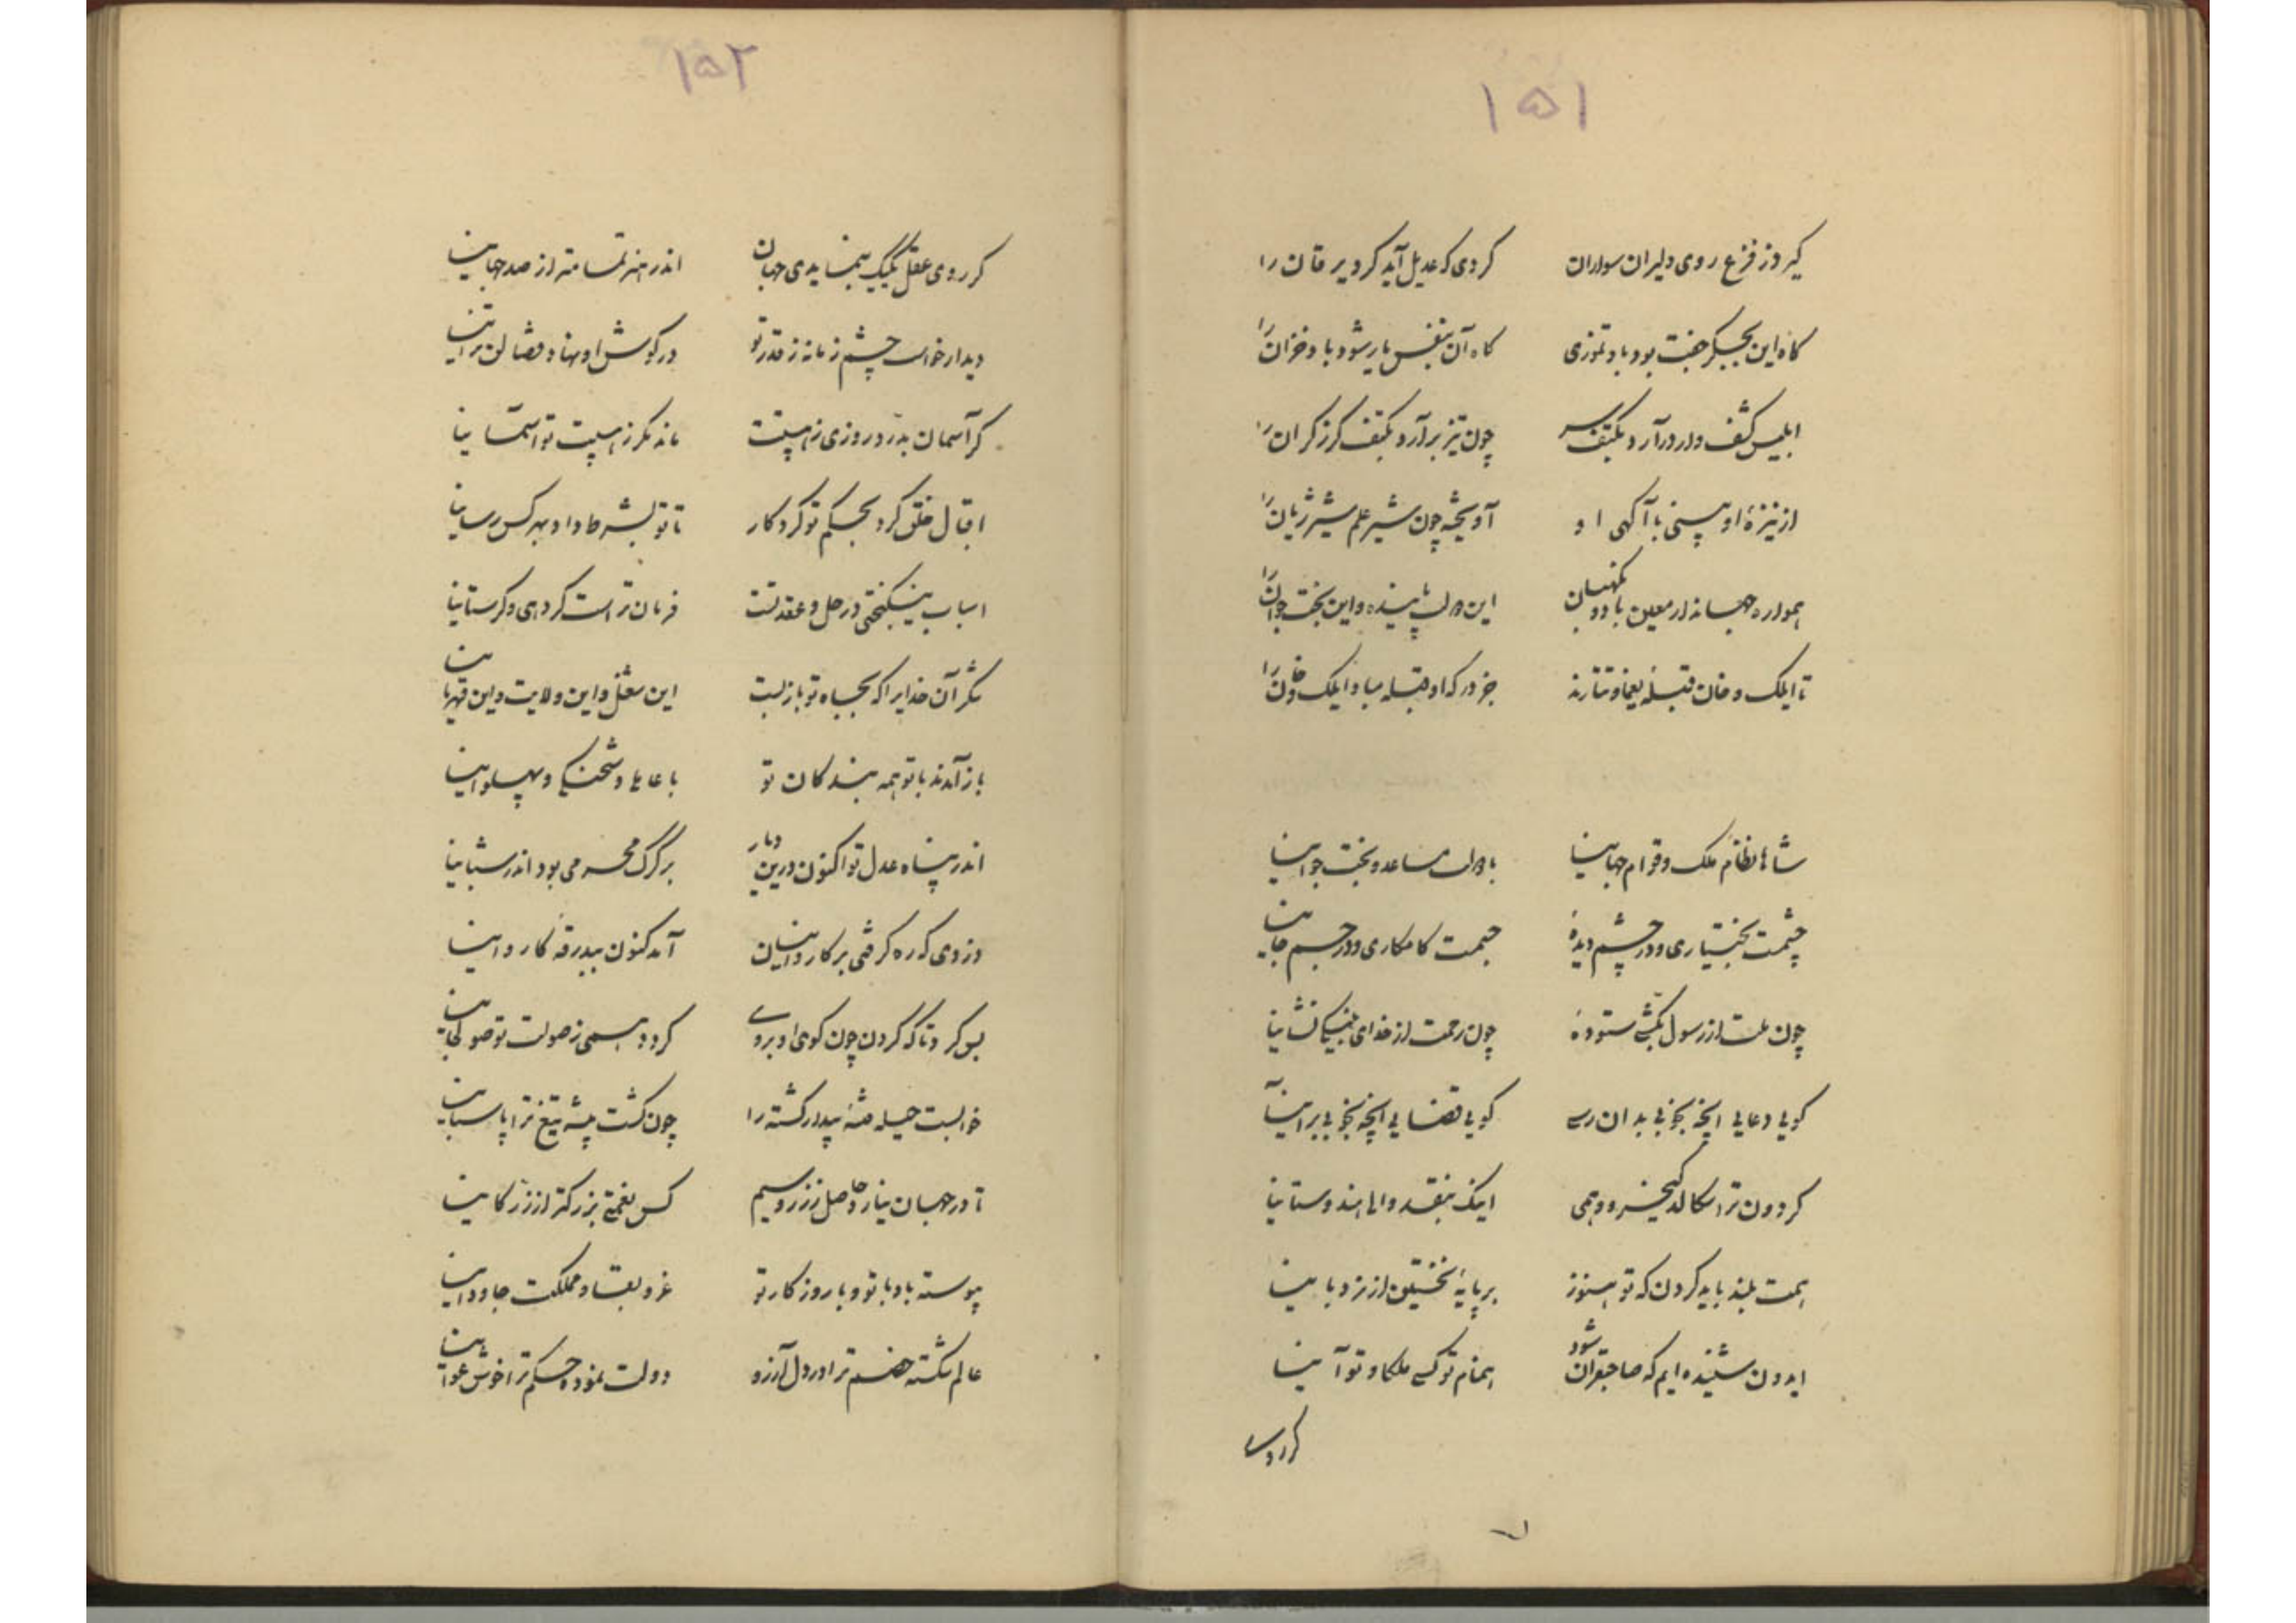 ۱۵۱
کیرد ز فزع روی دلیران سواران کردی که عدیل آید کرد یرقان را
کاه این بجگر جفت بود باد تموزی کاه آن بنفس یار شود باد خزان را
ابلیس کشف وار درآرد بکتف سر چون تیز برآرد بکتف کرز کران را
از نیزهٔ او بینی با آکهی او آویخته چون شیر علم شیر ژیان را
همواره جهاندار معین باد و نکهبان این دولت پاینده و این بخت جوان را
تا ایلک و خان قبلهٔ یغما و تتارند جز درکه او قبله مباد ایلک و خان را
شاها نظام ملک و قوام جهانیا با دولت مساعد و بخت جوانیا
چشمت بختیاری و در چشم دیدهٔ جسمت کامکاری و در جسم جانیا
چون ملت از رسول بکشی ستودهٔ چون رحمت از خدای بنیکی نشانیا
کویی دعایی انچه بجویی بدان رسی کویی قضایی انچه بجویی برانیا
کردون ترا سکالد کیخسرو و جمی اینک بنقد والی هندوستانیا
همت بلند باید کردن که تو هنوز بر پایهٔ نخستین از نردبانیا
ایدون شنیده ایم که صاحبقران شود همنام تو کسی ملکا و تو آنیا
کر روی
۱۵۲
کر روی عقل یکیک بنمایدی جهان اندر هنر تمامتر از صد جهانیا
دیدار خواست چشم زمانه ز قدر تو در کوش او نهاد قضا لن ترانیا
کر آسمان بدرد روزی ز هیبتت ماند مکر ز هیبت تو آسمانیا
اقبال خلق کرد بحکم تو کردکار تا تو بشرط داد بهر کس رسانیا
اسباب نیکبختی در حل و عقد تست فرمان تراست کر دهی و کر ستانیا
شکر آن خدایرا که بجاه تو باز بست این شغل و این ولایت و این قهرمانیا
باز آمدند با تو همه بندکان تو با عاملی و شحنکی و پهلوانیا
اندر پناه عدل تو اکنون درین دیار بر کرک محرمی بود اندر شبانیا
دزدی که ره کرفتی بر کاروانیان آمد کنون ببدرقه کاروانیا
بس کرد تا که کردن چون کوی او بروی کردد همی ز صولت تو صولجانیا
خوابست حیله فتنهٔ بیدار کشته را چون کشت پیشه تیغ ترا پاسبانیا
تا در جهان نیارد حاصل ز زر و سیم کس نعمتی بزرکتر از زر کانیا
پیوسته باد با تو و با روزکار تو عز و بقا و مملکت جاودانیا
عالم شکسته خصم ترا در دل آرزو دولت نموده حکم ترا خوش عنانیا